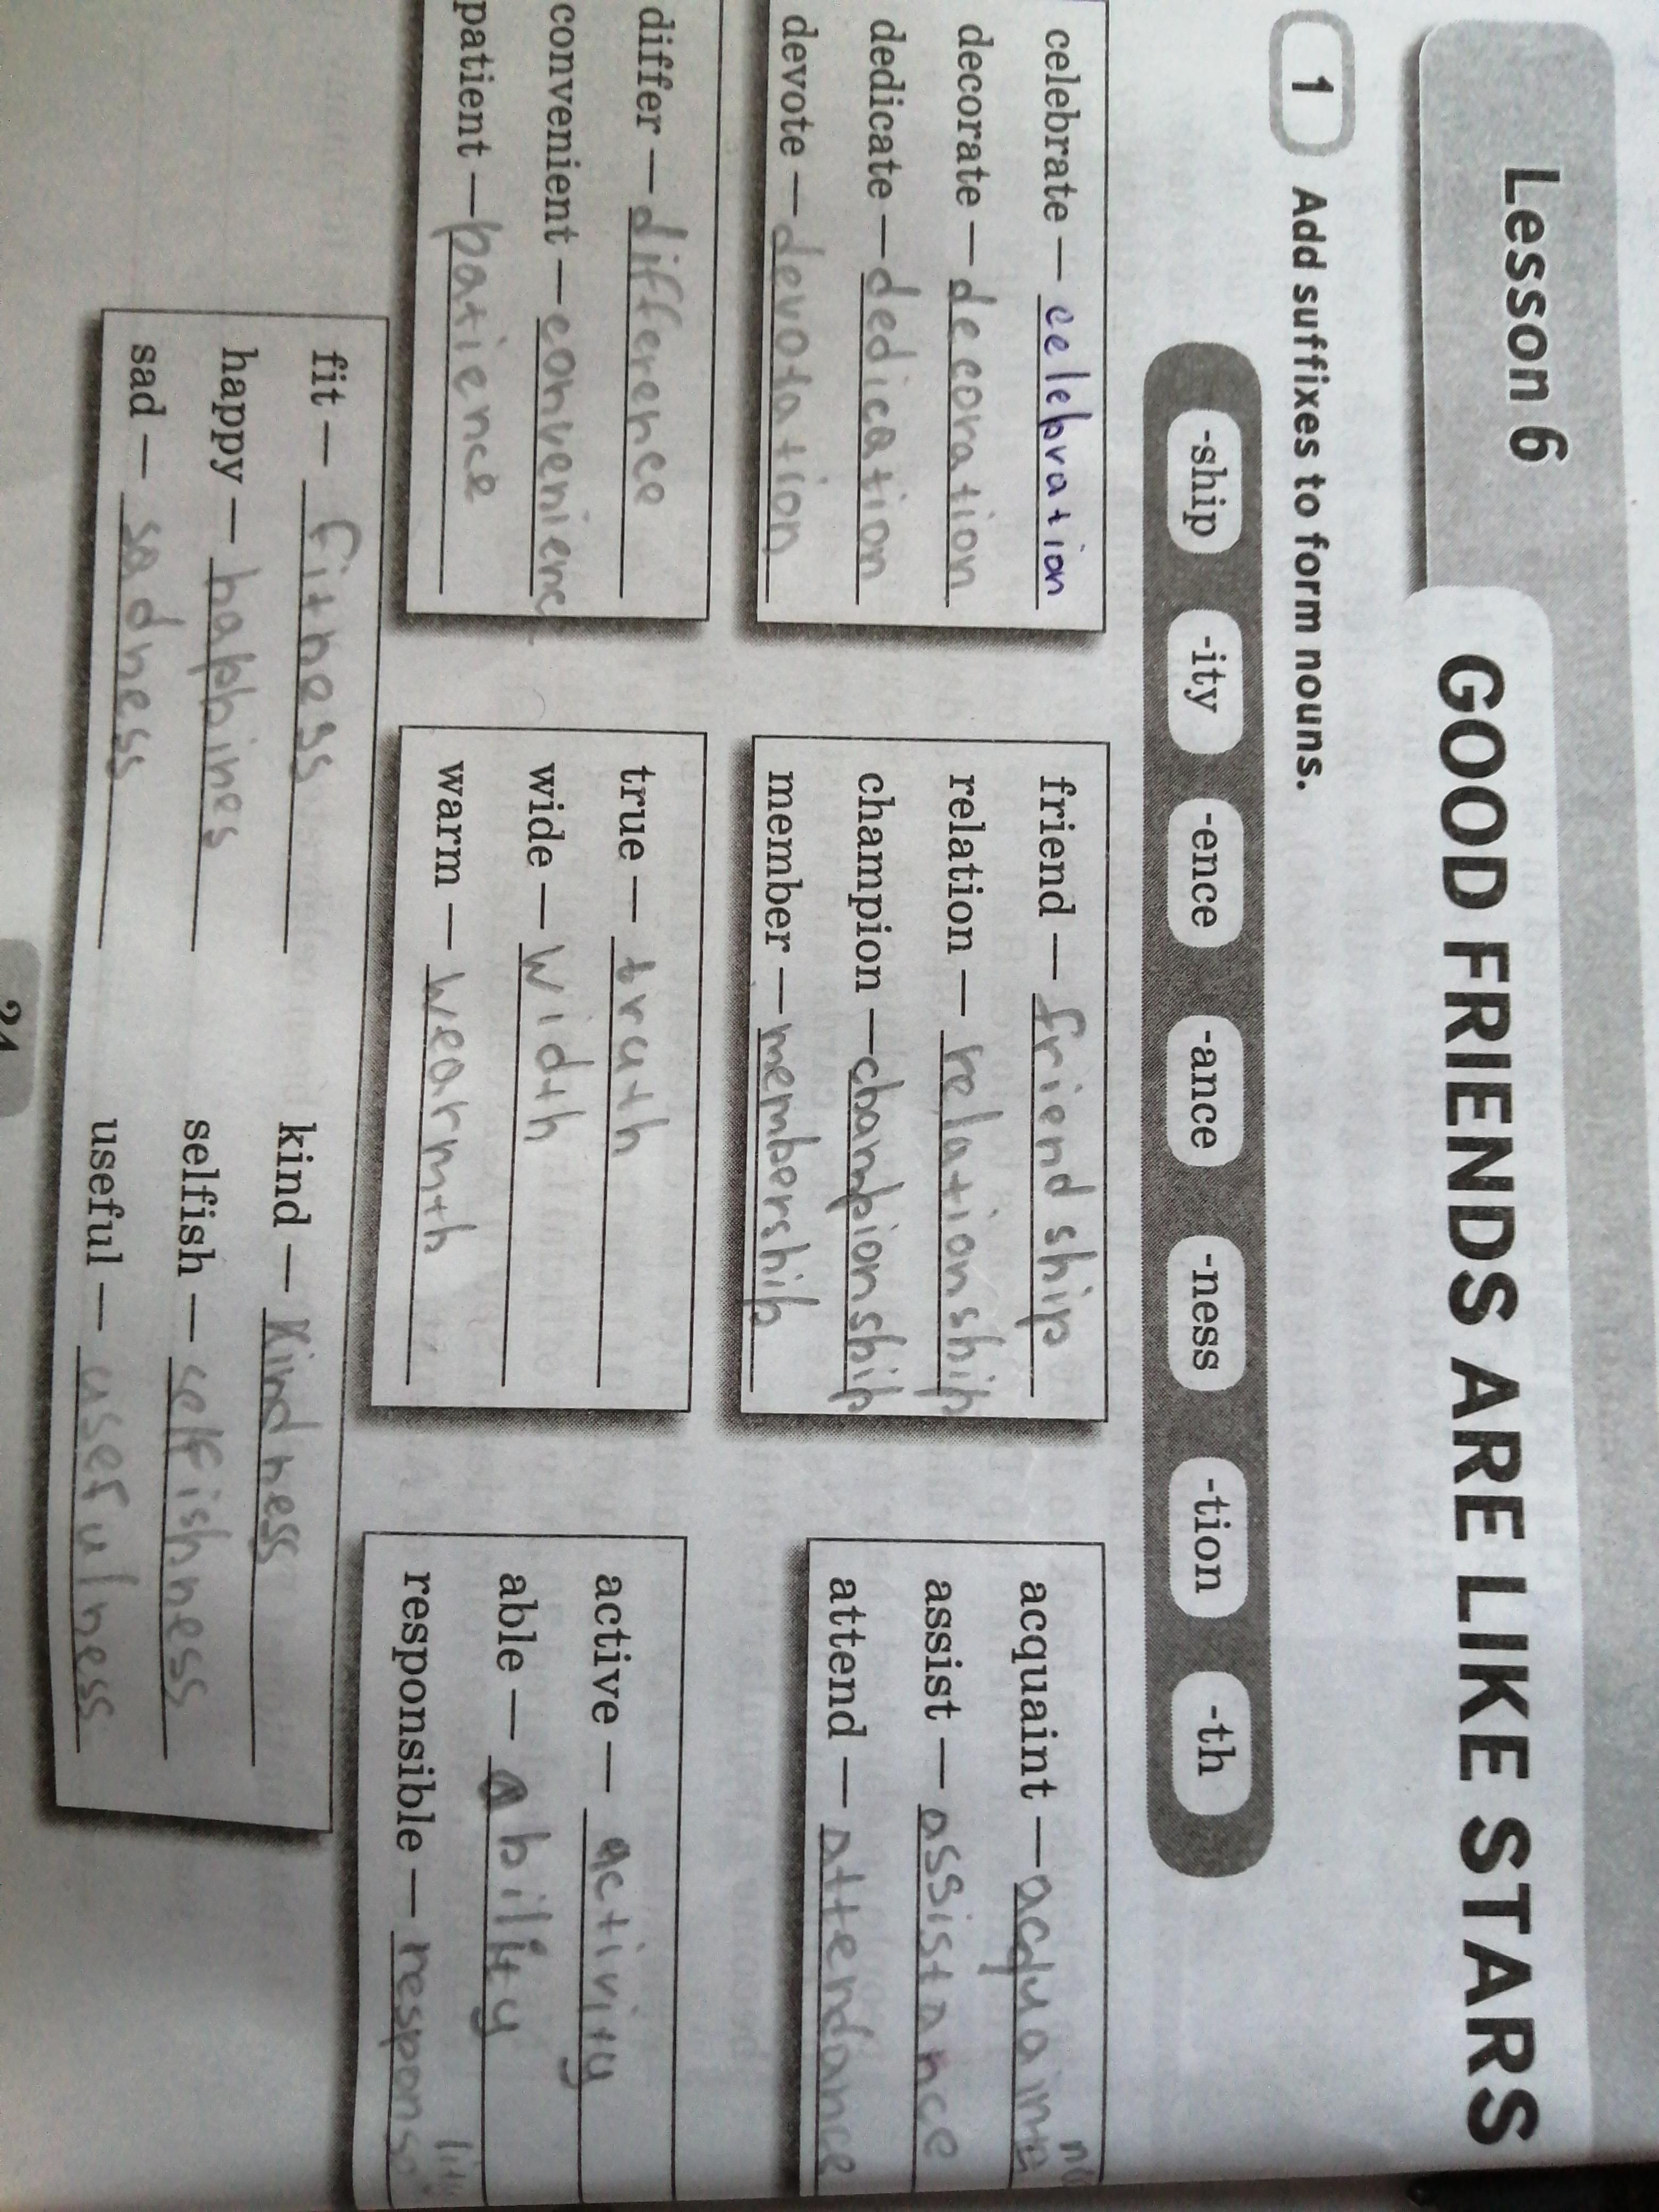 Lesson 6 GOOD FRIENDS ARE LIKE STARS
1 Add suffixes to form nouns.
-ship -ity -ence -ance -ness -tion -th
celebrate — celebration
decorate — decoration
dedicate — dedication
devote — devotation
friend — friendship
relation — relationship
champion — championship
member — membership
acquaint — acquainta nce
assist — assistance
attend — attendance
differ — difference
convenient — convenienc
patient — patience
true — truth
wide — width
warm — wearmth
active — activity
able — ability
responsible — responsi lity
fit — fitness
happy — happines
sad — sadness
kind — kindness
selfish — selfishness
useful — usefulness
24